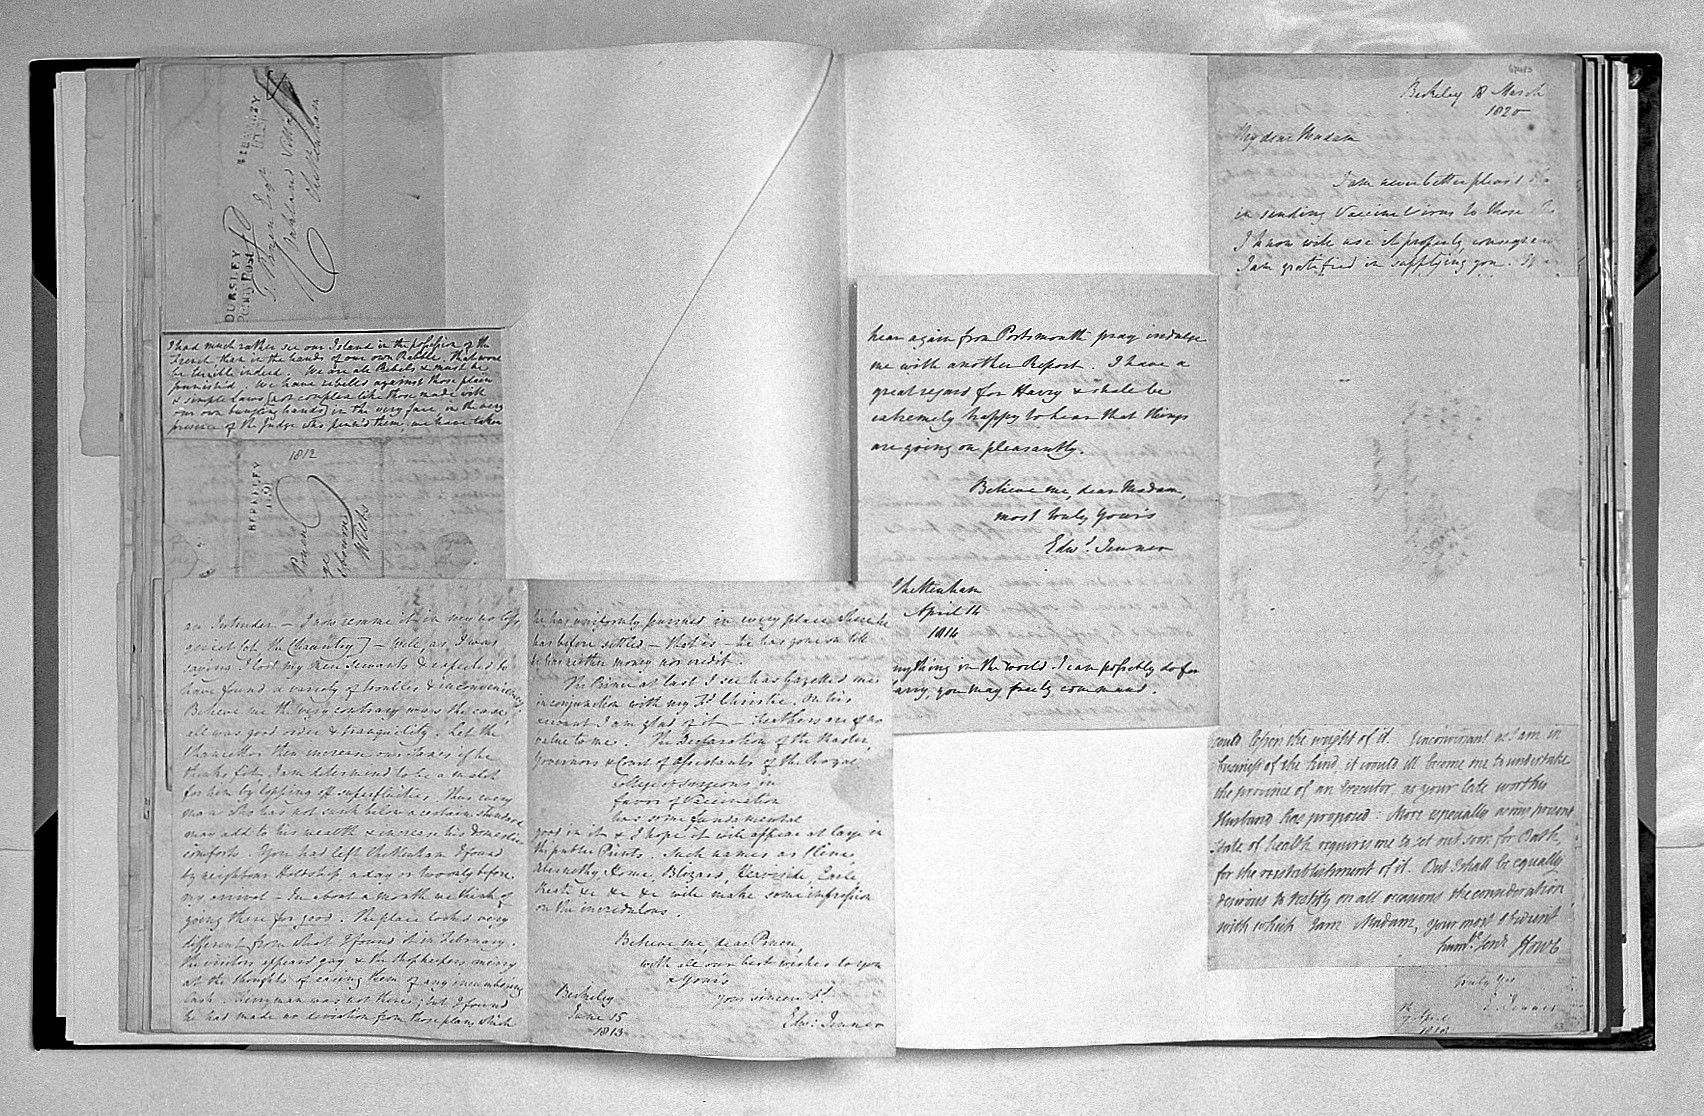 BERKELEY
DURSLEY
Penny Post
Esqr
Cheltenham
I had much rather see our Island in the possession of the
French than in the hands of our own Rabble. That wore
be terrible indeed. We are all Rebels & must be
punished. We have rebelled against those plain
& simple Laws (not complex like those made with
our own bungling hands) in the very face, in the very
presence of the Judge who penn'd them, we have taken
1812
BERKELEY
Wilts
an Intruder - I now resume it in very no less
quiet (at the Chauntry) - Well, as I was
saying I lost my three Servants & expected to
have found a variety of troubles & inconveniences
Believe me the very contrary was the case,
all was good order & tranquility. Let the
Chancellor then increase our Taxes if he
thinks fit, I am determined to be a match
for him by lopping off superfluities. Thus every
man who has not sunk below a certain standard
may add to his wealth & increase his domestic
comforts. You had left Cheltenham I found
by neighbour a day or two only before
my arrival - In about a month we think of
going there for good. The place looked very
different from what I found it in February.
The visitors appeared gay & the shopkeepers merry
at the thoughts of easing them of any encumbering
Cash. Berryman was not there; but I found
he had made no deviation from those plans which
he has uniformly pursued in every place where he
has before settled - that is - he has gone on till
he has neither money nor credit.
The Prince at last I see has Gazetted me
in conjunction with my Fd. Christie. On his
account I am glad of it - Feathers are of no
value to me. The Declaration of the Master,
Governors & Court of Assistants of the Royal
College of Surgeons in
favor of Vaccination
has some fundamental
good in it & I hope it will appear at large in
the public Prints. Such names as Cline,
Abernethy, Home, Blizard, Earle,
&c &c &c will make some impression
on the incredulous.
Believe me, dear Pruen,
with all our best wishes to you
& Yours
Your sincere Fd.
Edwd. Jenner
Berkeley
June 15
1813
hear again from Portsmouth pray indulge
me with another Report. I have a
great regard for Harry & shall be
extremely happy to hear that things
are going on pleasantly.
Believe me, dear Madam,
most truly Yours
Edwd. Jenner
Cheltenham
April 14
1814
nything in the world I can possibly do for
arry, you may freely command.
Berkeley 18 March
1820
My dear Madam
I am never better pleas'd
in sending Vaccine Virus to those
I know will use it properly,
I am gratified in supplying you.
could lessen the weight of it. Unconversant as I am in
business of the kind, it would ill become me to undertake
the province of an Executor, as your late worthy
Husband has proposed: More especially as my present
State of health requires me to set out soon for Bath,
for the reestablishment of it. But I shall be equally
desirous to testify on all occasions the consideration
with which I am Madam, your most obedient
Howe
truly Yrs
E. Jenner
April